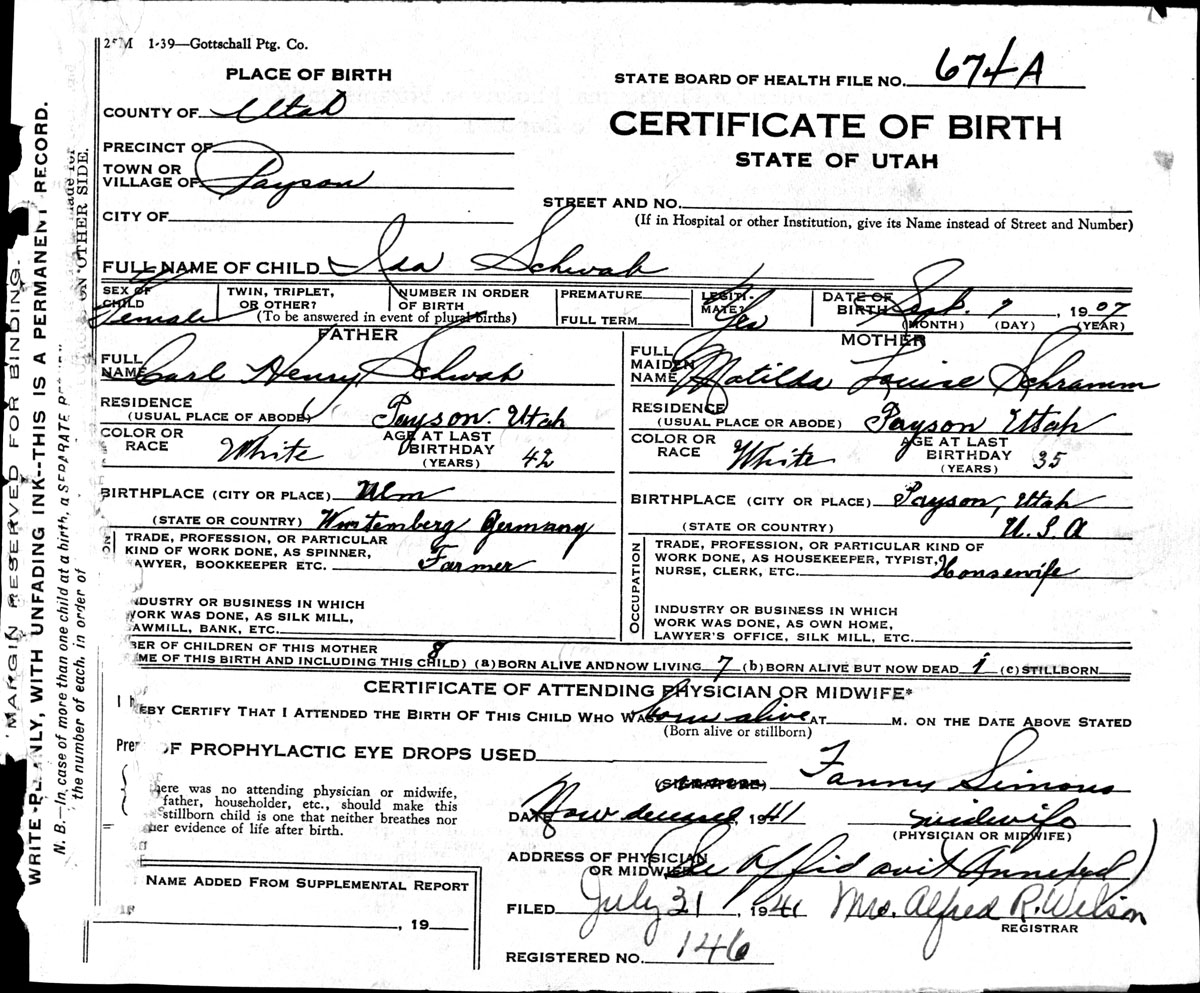 25M 1-39—Gottschall Ptg. Co.
PLACE OF BIRTH
STATE BOARD OF HEALTH FILE NO. 674A
COUNTY OF Utah
CERTIFICATE OF BIRTH
STATE OF UTAH
PRECINCT OF
TOWN OR
VILLAGE OF Payson
STREET AND NO.
(If in Hospital or other Institution, give its Name instead of Street and Number)
CITY OF
FULL NAME OF CHILD Ida Schwab
SEX OF
CHILD Female
TWIN, TRIPLET,
OR OTHER?
NUMBER IN ORDER
OF BIRTH
(To be answered in event of plural births)
PREMATURE
FULL TERM
LEGITI-
MATE? Yes
DATE OF
BIRTH Sept. 7, 1907
(MONTH) (DAY) (YEAR)
FATHER
FULL
NAME Carl Henry Schwab
RESIDENCE
(USUAL PLACE OF ABODE) Payson. Utah
COLOR OR
RACE White
AGE AT LAST
BIRTHDAY
(YEARS) 42
BIRTHPLACE (CITY OR PLACE) Ulm
(STATE OR COUNTRY) Wurtemberg Germany
TRADE, PROFESSION, OR PARTICULAR
KIND OF WORK DONE, AS SPINNER,
AWYER, BOOKKEEPER ETC. Farmer
NDUSTRY OR BUSINESS IN WHICH
WORK WAS DONE, AS SILK MILL,
AWMILL, BANK, ETC.
MOTHER
FULL
MAIDEN
NAME Matilda Louise Schramm
RESIDENCE
(USUAL PLACE OR ABODE) Payson Utah
COLOR OR
RACE White
AGE AT LAST
BIRTHDAY
(YEARS) 35
BIRTHPLACE (CITY OR PLACE) Payson, Utah
(STATE OR COUNTRY) U.S.A
OCCUPATION
TRADE, PROFESSION, OR PARTICULAR KIND OF
WORK DONE, AS HOUSEKEEPER, TYPIST,
NURSE, CLERK, ETC. Housewife
INDUSTRY OR BUSINESS IN WHICH
WORK WAS DONE, AS OWN HOME,
LAWYER'S OFFICE, SILK MILL, ETC.
BER OF CHILDREN OF THIS MOTHER 8
ME OF THIS BIRTH AND INCLUDING THIS CHILD) (a) BORN ALIVE AND NOW LIVING 7 (b) BORN ALIVE BUT NOW DEAD 1 (c) STILLBORN
CERTIFICATE OF ATTENDING PHYSICIAN OR MIDWIFE*
I H EBY CERTIFY THAT I ATTENDED THE BIRTH OF THIS CHILD WHO WAS born alive AT M. ON THE DATE ABOVE STATED
(Born alive or stillborn)
OF PROPHYLACTIC EYE DROPS USED
here was no attending physician or midwife,
father, householder, etc., should make this
stillborn child is one that neither breathes nor
her evidence of life after birth.
(SIGNATURE) Fanny Simons
DATE Now deceased, 1941 midwife
(PHYSICIAN OR MIDWIFE)
ADDRESS OF PHYSICIAN
OR MIDWIFE (See Affidavit Annexed)
NAME ADDED FROM SUPPLEMENTAL REPORT
, 19
FILED July 31, 1941 Mrs. Alfred R. Wilson
REGISTRAR
REGISTERED NO. 146
MARGIN RESERVED FOR BINDING.
WRITE PLAINLY, WITH UNFADING INK--THIS IS A PERMANENT RECORD.
N. B.—In case of more than one child at a birth, a SEPARATE
the number of each, in order of
ON OTHER SIDE.